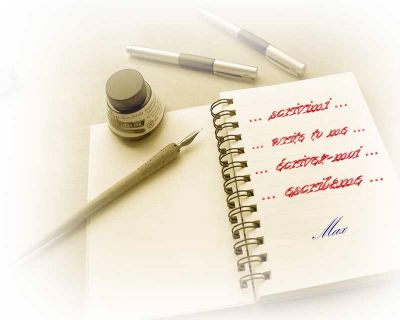 ... scrivimi ...
... write to me ...
... écrivez-moi ...
... escribeme ...
Max